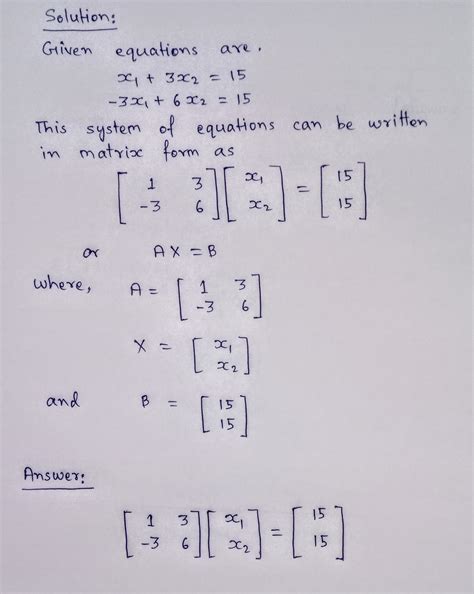 Solution:
Given equations are.
x₁ + 3x₂ = 15
-3x₁ + 6x₂ = 15
This system of equations can be written
in matrix form as
[ 1 3 ] [ x₁ ] = [ 15 ]
[ -3 6 ] [ x₂ ] [ 15 ]
or AX = B
where, A = [ 1 3 ]
[ -3 6 ]
X = [ x₁ ]
[ x₂ ]
and B = [ 15 ]
[ 15 ]
Answer:
[ 1 3 ] [ x₁ ] = [ 15 ]
[ -3 6 ] [ x₂ ] [ 15 ]